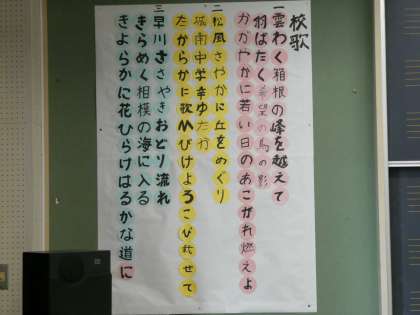 校歌
一 雲わく箱根の峰を越えて
羽ばたく希望の鳥の影
かがやかに若い日のあこがれ燃えよ
二 松風さやかに丘をめぐり
城南中学幸ゆたか
たからかに歌ひびけよろこびのせて
三 早川ささやきおどり流れ
きらめく相模の海に入る
きよらかに花ひらけはるかな道に